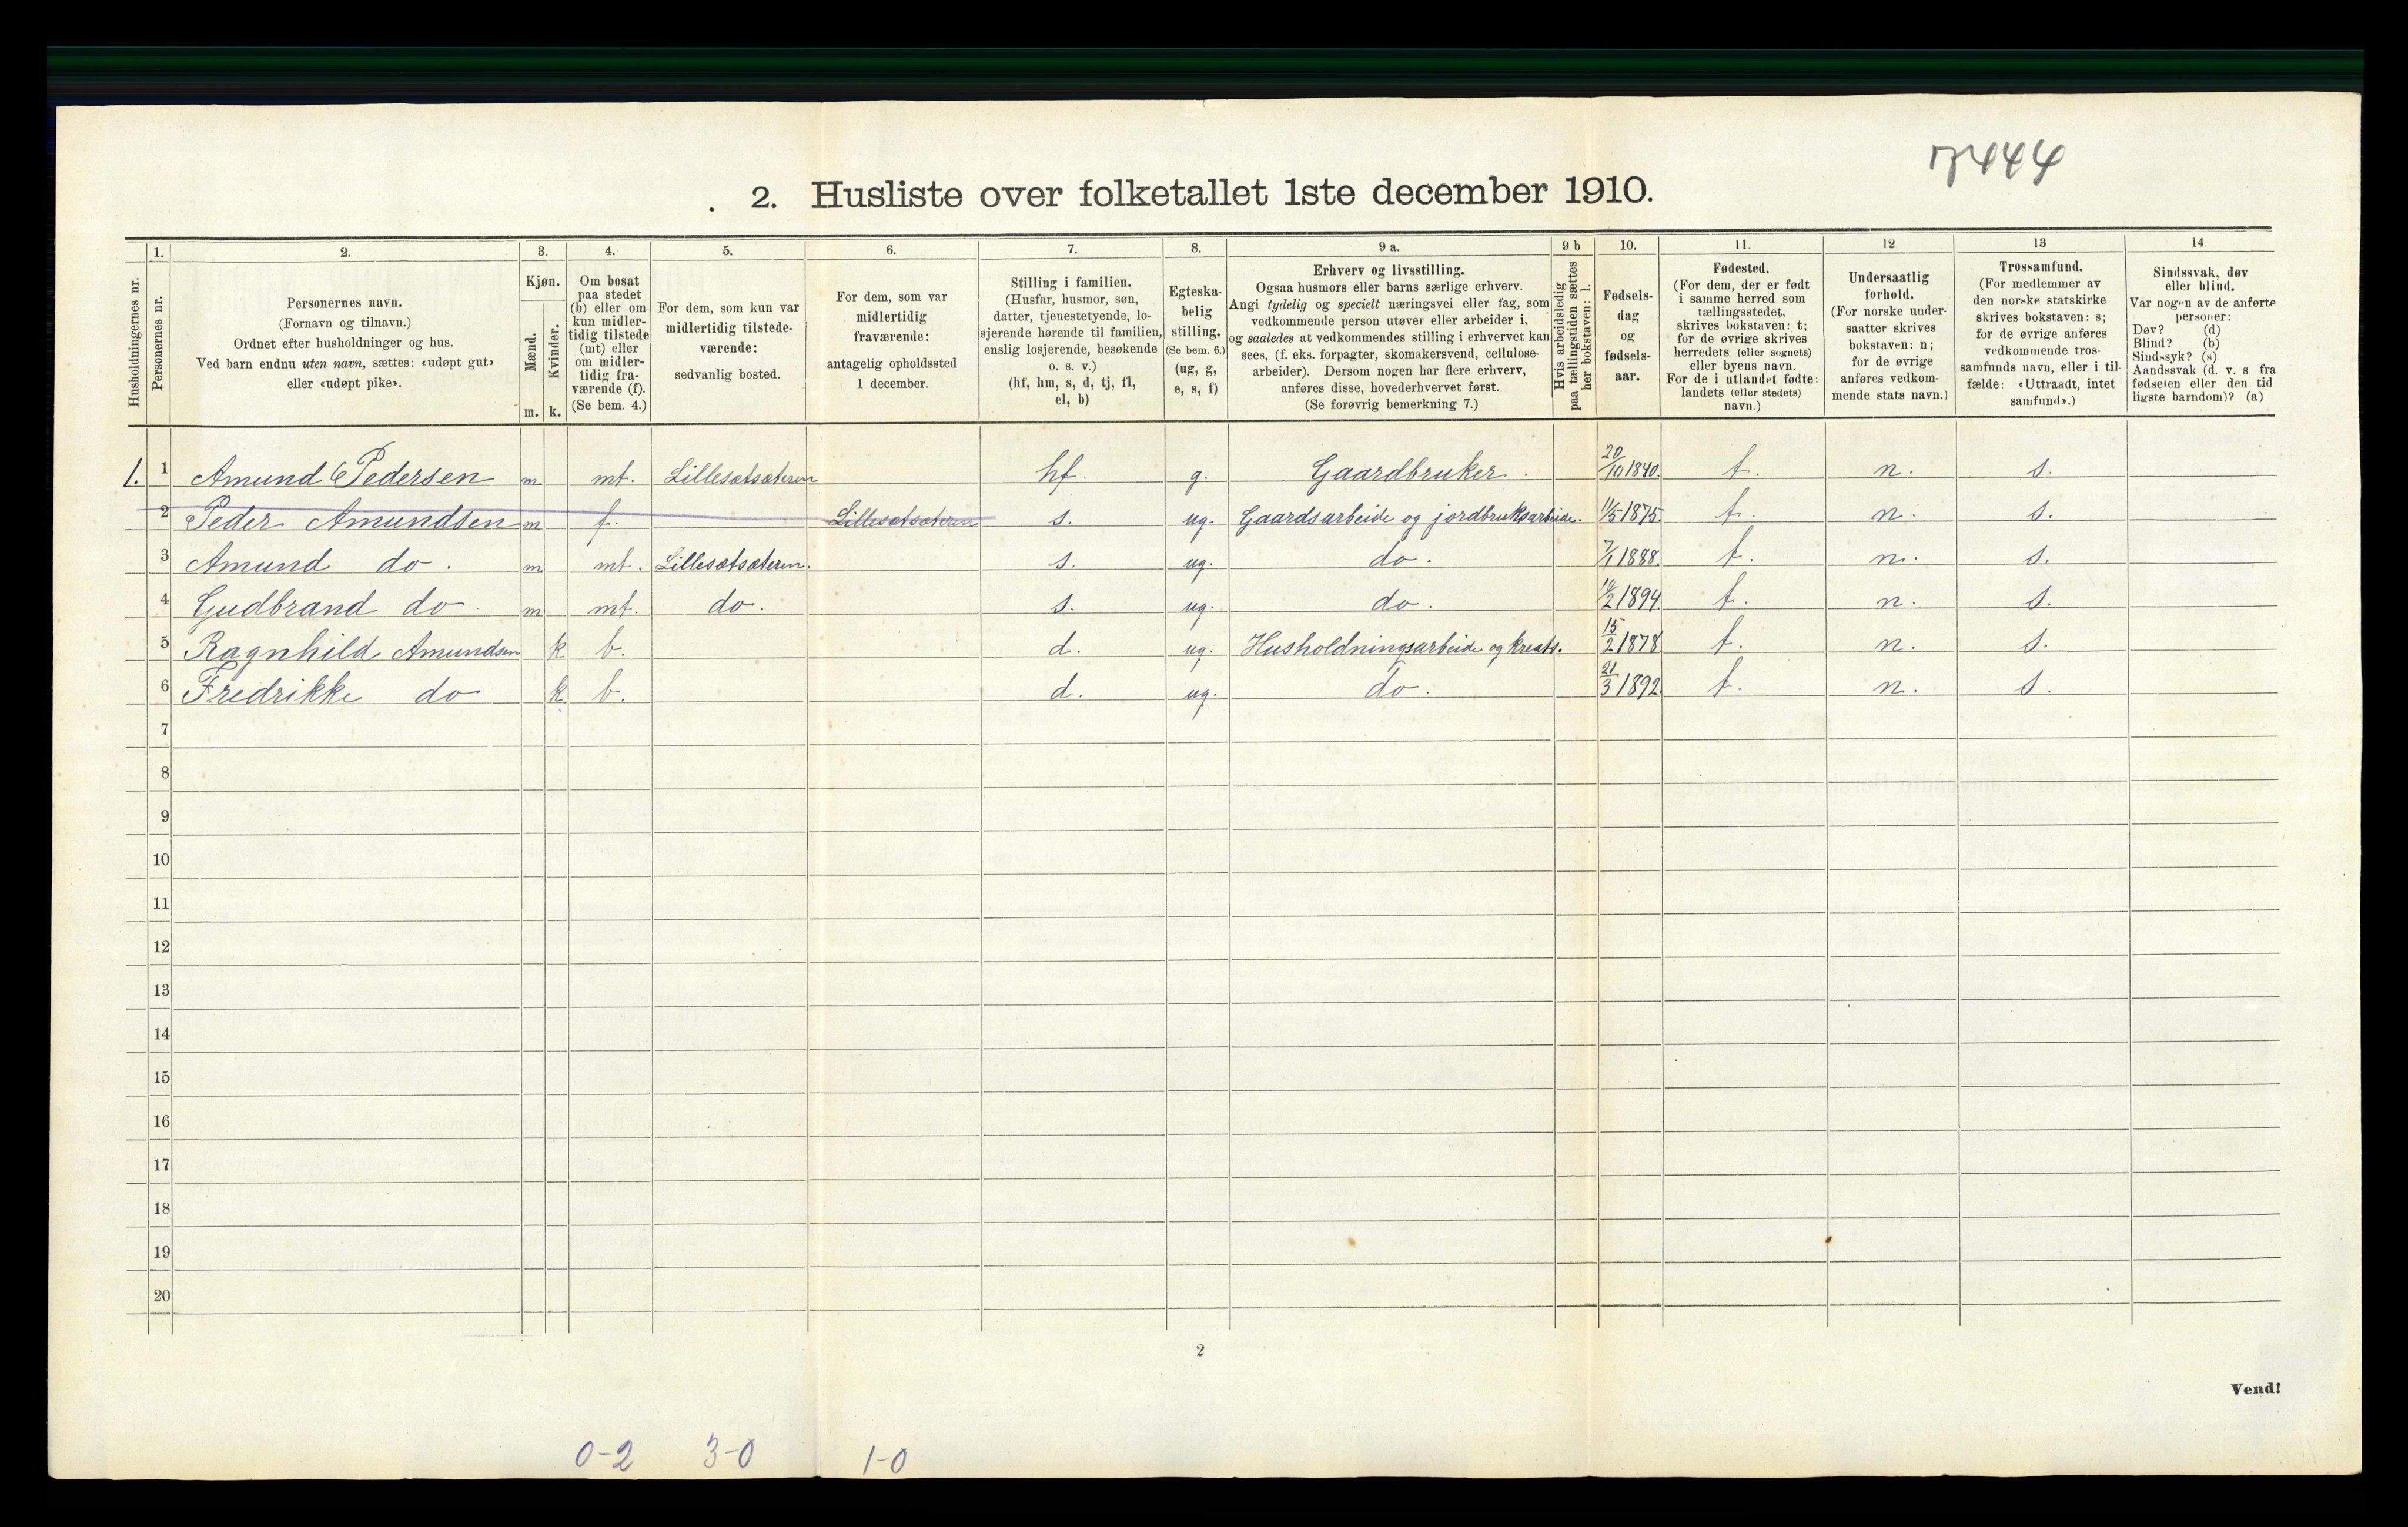 7444
2. Husliste over folketallet 1ste december 1910.
Husholdningernes nr.
1.
Personernes nr.
2.
Personernes navn.
(Fornavn og tilnavn.)
Ordnet efter husholdninger og hus.
Ved barn endnu uten navn, sættes: «udøpt gut»
eller «udøpt pike».
3.
Kjøn.
Mænd.
Kvinder.
m. k.
4.
Om bosat
paa stedet
(b) eller om
kun midler-
tidig tilstede
(mt) eller
om midler-
tidig fra-
værende (f).
(Se bem. 4.)
5.
For dem, som kun var
midlertidig tilstede-
værende:
sedvanlig bosted.
6.
For dem, som var
midlertidig
fraværende:
antagelig opholdssted
1 december.
7.
Stilling i familien.
(Husfar, husmor, søn,
datter, tjenestetyende, lo-
sjerende hørende til familien,
enslig losjerende, besøkende
o. s. v.)
(hf, hm, s, d, tj, fl,
el, b)
8.
Egteska-
belig
stilling.
(Se bem. 6.)
(ug, g,
e, s, f)
9 a.
Erhverv og livsstilling.
Ogsaa husmors eller barns særlige erhverv.
Angi tydelig og specielt næringsvei eller fag, som
vedkommende person utøver eller arbeider i,
og saaledes at vedkommendes stilling i erhvervet kan
sees, (f. eks. forpagter, skomakersvend, cellulose-
arbeider). Dersom nogen har flere erhverv,
anføres disse, hovederhvervet først.
(Se forøvrig bemerkning 7.)
9 b
Hvis arbeidsledig
paa tællingstiden sættes
her bokstaven: l.
10.
Fødsels-
dag
og
fødsels-
aar.
11.
Fødested.
(For dem, der er født
i samme herred som
tællingsstedet,
skrives bokstaven: t;
for de øvrige skrives
herredets (eller sognets)
eller byens navn.
For de i utlandet fødte:
landets (eller stedets)
navn.)
12
Undersaatlig
forhold.
(For norske under-
saatter skrives
bokstaven: n;
for de øvrige
anføres vedkom-
mende stats navn.)
13
Trossamfund.
(For medlemmer av
den norske statskirke
skrives bokstaven: s;
for de øvrige anføres
vedkommende tros-
samfunds navn, eller i til-
fælde: «Uttraadt, intet
samfund».)
14
Sindssvak, døv
eller blind.
Var nogen av de anførte
personer:
Døv? (d)
Blind? (b)
Sindssyk? (s)
Aandssvak (d. v. s fra
fødselen eller den tid
ligste barndom)? (a)
1. 1 Amund Pedersen m mt. Lillesætsæteren hf. g. Gaardbruker. 20/10 1840. t. n. s.
2 Peder Amundsen m f. Lillesætsæteren s. ug. Gaardsarbeide og jordbruksarbeide. 11/5 1875. t. n. s.
3 Amund do. m mt. Lillesætsæteren. s. ug. do. 7/1 1888. t. n. s.
4 Gudbrand do. m mt. do. s. ug. do. 1894. t. n. s.
5 Ragnhild Amundsen k b. d. ug. Husholdningsarbeide og kreats. 15/2 1878. t. n. s.
6 Fredrikke do k. b. d. ug. do. 21/3 1892. t. n. s.
7
8
9
10
11
12
13
14
15
16
17
18
19
20
2
Vend!
0-2 3-0 1-0